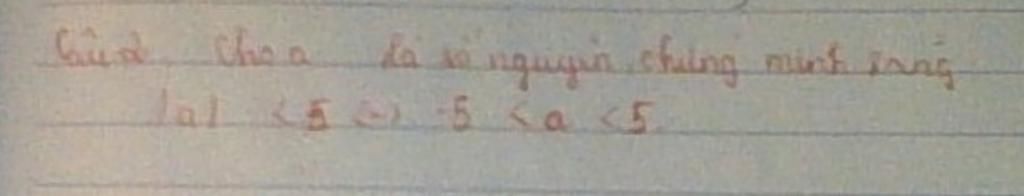 Câu 2. Cho a là số nguyên chứng minh rằng
|a| < 5 <=> -5 < a < 5